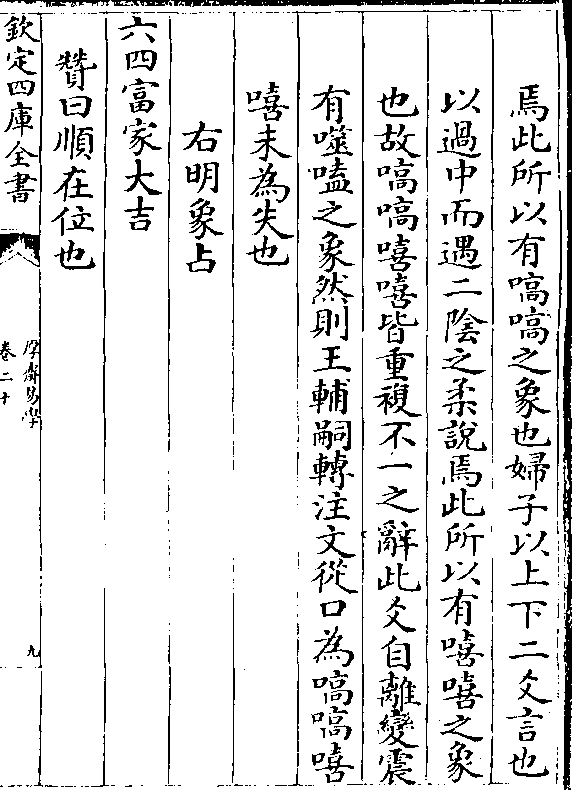 焉此所以有嗃嗃之象也婦子以上下二爻言也
以過中而遇二陰之柔說焉此所以有嘻嘻之象
也故嗃嗃嘻嘻皆重複不一之辭此爻自離變震
有噬嗑之象然則王輔嗣轉注文從口為嗃嗃嘻
嘻未為失也
右明象占
六四富家大吉
贊曰順在位也
欽定四庫全書
厚齋易學
卷二十
九